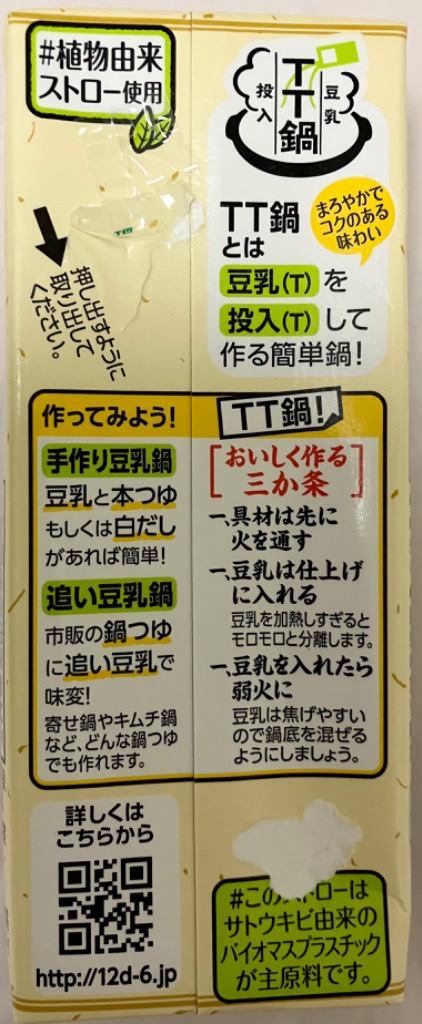 #植物由来
ストロー使用
押し出すように
取り出して
ください。
投入
TT鍋
豆乳
まろやかで
コクのある
味わい
TT鍋
とは
豆乳(T)を
投入(T)して
作る簡単鍋!
作ってみよう!
手作り豆乳鍋
豆乳と本つゆ
もしくは白だし
があれば簡単!
追い豆乳鍋
市販の鍋つゆ
に追い豆乳で
味変!
寄せ鍋やキムチ鍋
など、どんな鍋つゆ
でも作れます。
TT鍋!
おいしく作る
三か条
一、具材は先に
火を通す
一、豆乳は仕上げ
に入れる
豆乳を加熱しすぎると
モロモロと分離します。
一、豆乳を入れたら
弱火に
豆乳は焦げやすい
ので鍋底を混ぜる
ようにしましょう。
詳しくは
こちらから
http://12d-6.jp
#このストローは
サトウキビ由来の
バイオマスプラスチック
が主原料です。